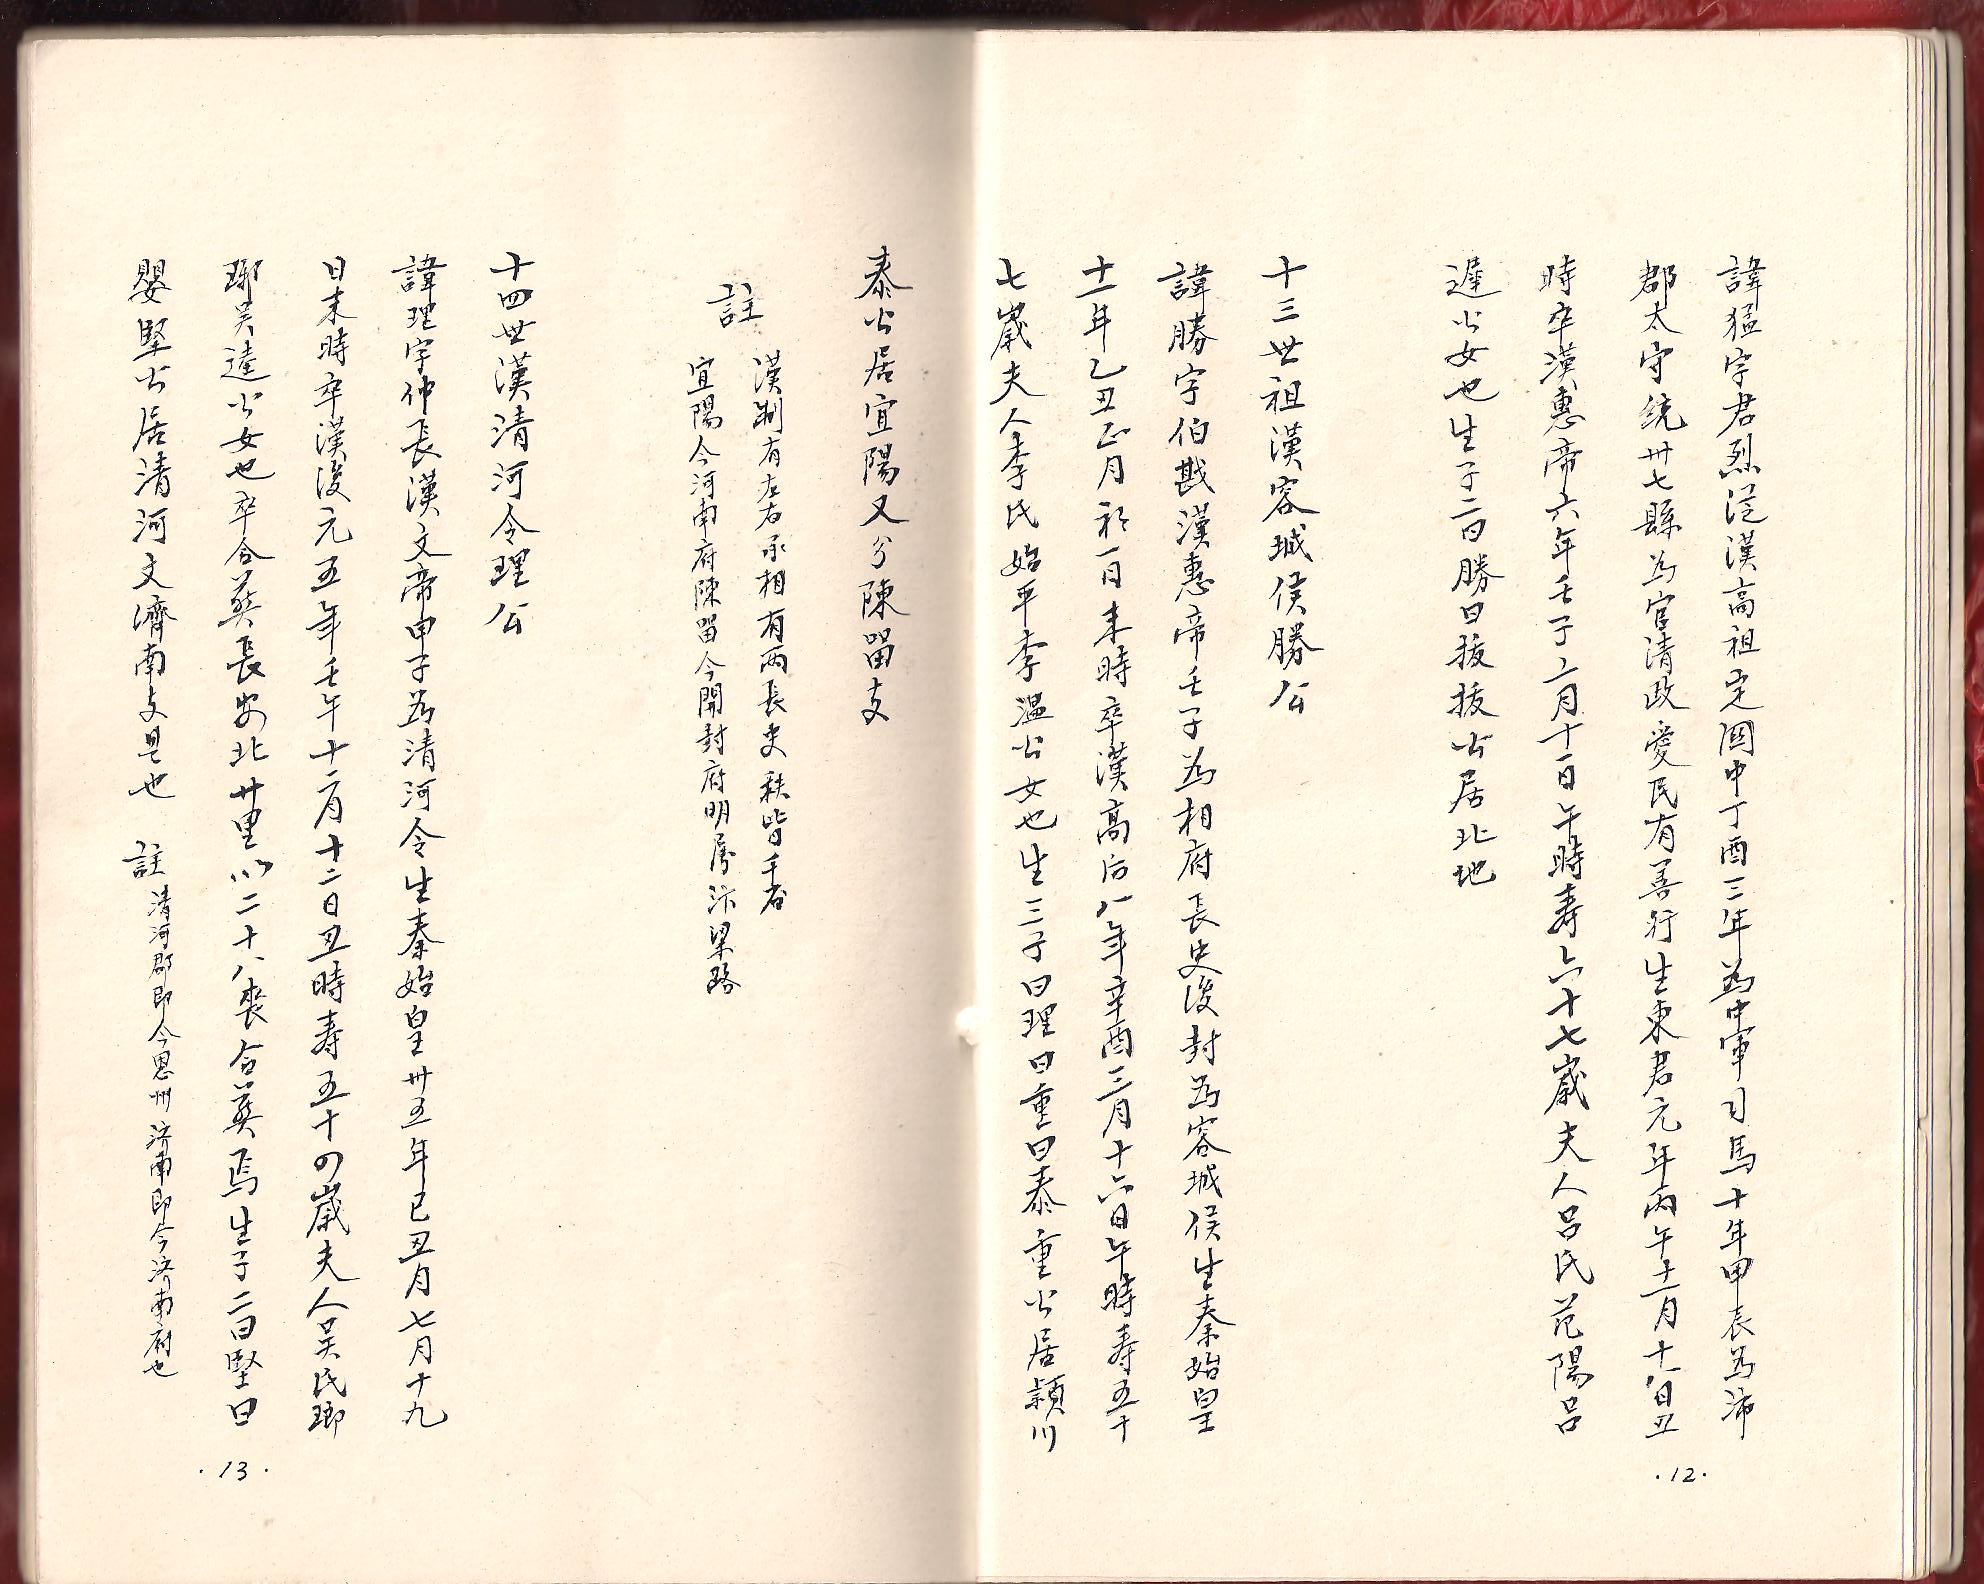 諱猛字君烈從漢高祖定國中丁酉三年為中軍司馬十年甲表為沛
郡太守統卅七縣為官清政愛民有善行生東君元年丙午十二月十八日丑
時卒漢惠帝六年壬子二月十一日午時壽六十七歲夫人呂氏范陽呂
遲公女也生子二曰勝曰拔拔公居北地
十三世祖漢容城侯勝公
諱勝字伯戡漢惠帝壬子為相府長史後封為容城侯生秦始皇
十一年乙丑正月初一日未時卒漢高后八年辛酉三月十六日午時壽五十
七歲夫人李氏始平李溫公女也生三子曰理曰重曰泰重公居潁川
·12·
泰公居宜陽又分陳留支
註
漢制有左右承相有兩長史秩皆千石
宜陽今河南府陳留今開封府明屬汴梁路
十四世漢清河令理公
諱理字仲長漢文帝甲子為清河令生秦始皇卅五年己丑月七月十九
日未時卒漢後元五年壬午十二月十二日丑時壽五十四歲夫人吳氏瑯
琊吳達公女也卒合葬長安北廿里以二十八喪合葬焉生子二曰堅曰
嬰堅公居清河支濟南支是也 註 清河郡即今恩州濟南即今濟南府也
·13·